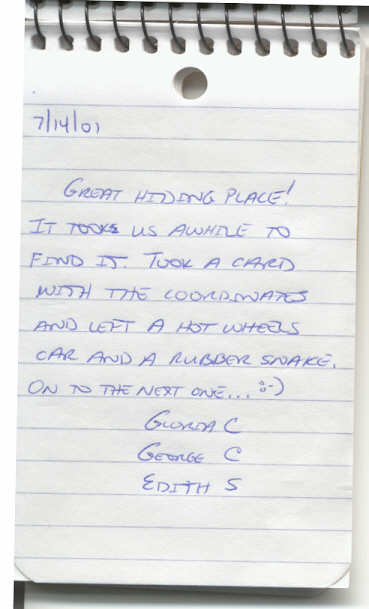 7/14/01
GREAT HIDING PLACE!
IT TOOK US AWHILE TO
FIND IT. TOOK A CARD
WITH THE COORDINATES
AND LEFT A HOT WHEELS
CAR AND A RUBBER SNAKE.
ON TO THE NEXT ONE... :-)
GLORIA C
GEORGE C
EDITH S